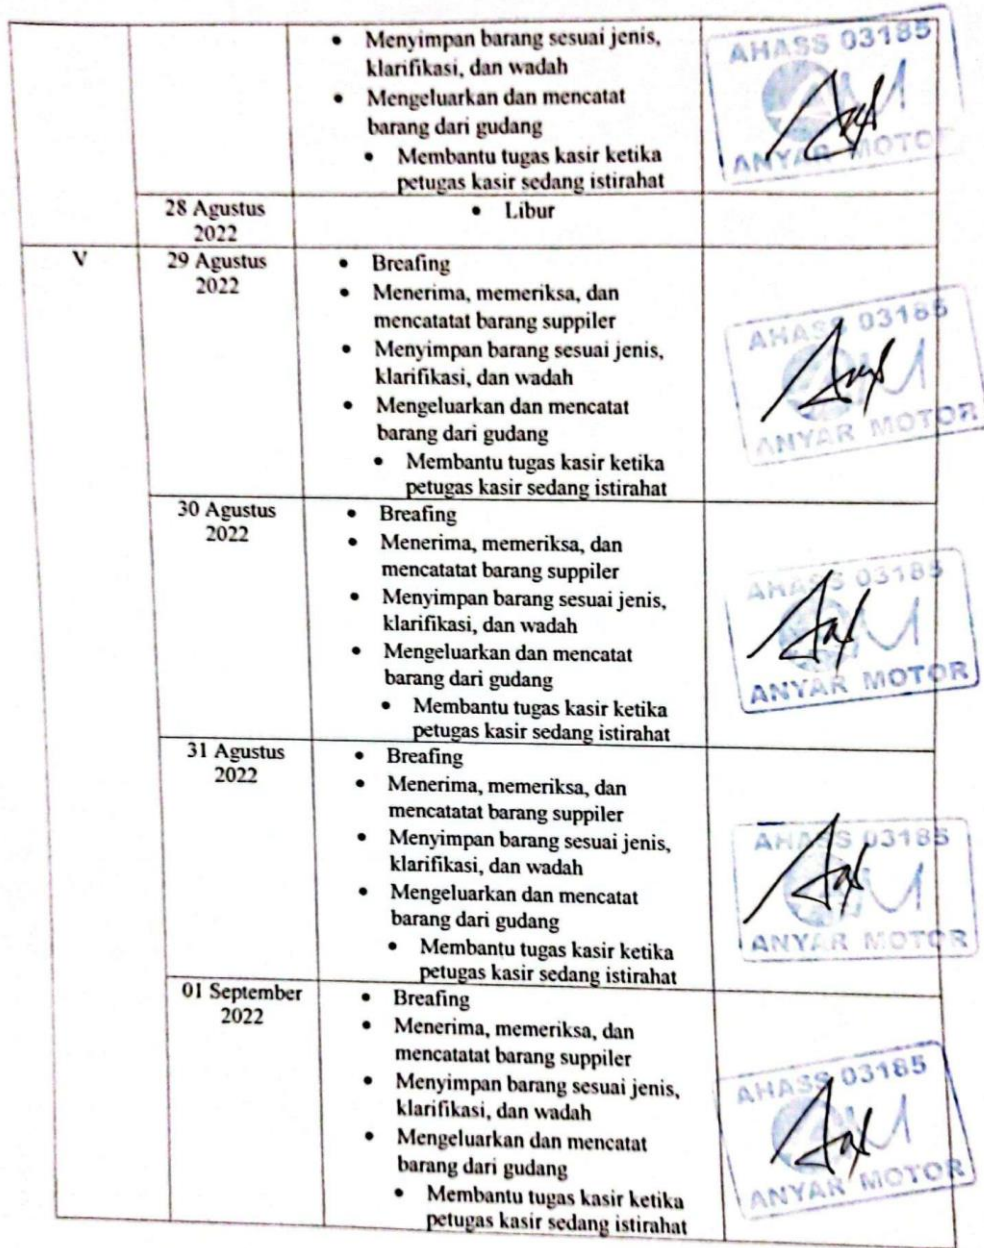 • Menyimpan barang sesuai jenis,
klarifikasi, dan wadah
• Mengeluarkan dan mencatat
barang dari gudang
• Membantu tugas kasir ketika
petugas kasir sedang istirahat
AHASS 03185
ANYAR MOTOR
28 Agustus
2022
• Libur
V
29 Agustus
2022
• Breafing
• Menerima, memeriksa, dan
mencatatat barang suppiler
• Menyimpan barang sesuai jenis,
klarifikasi, dan wadah
• Mengeluarkan dan mencatat
barang dari gudang
• Membantu tugas kasir ketika
petugas kasir sedang istirahat
AHASS 03185
ANYAR MOTOR
30 Agustus
2022
• Breafing
• Menerima, memeriksa, dan
mencatatat barang suppiler
• Menyimpan barang sesuai jenis,
klarifikasi, dan wadah
• Mengeluarkan dan mencatat
barang dari gudang
• Membantu tugas kasir ketika
petugas kasir sedang istirahat
AHASS 03185
ANYAR MOTOR
31 Agustus
2022
• Breafing
• Menerima, memeriksa, dan
mencatatat barang suppiler
• Menyimpan barang sesuai jenis,
klarifikasi, dan wadah
• Mengeluarkan dan mencatat
barang dari gudang
• Membantu tugas kasir ketika
petugas kasir sedang istirahat
AHASS 03185
ANYAR MOTOR
01 September
2022
• Breafing
• Menerima, memeriksa, dan
mencatatat barang suppiler
• Menyimpan barang sesuai jenis,
klarifikasi, dan wadah
• Mengeluarkan dan mencatat
barang dari gudang
• Membantu tugas kasir ketika
petugas kasir sedang istirahat
AHASS 03185
ANYAR MOTOR